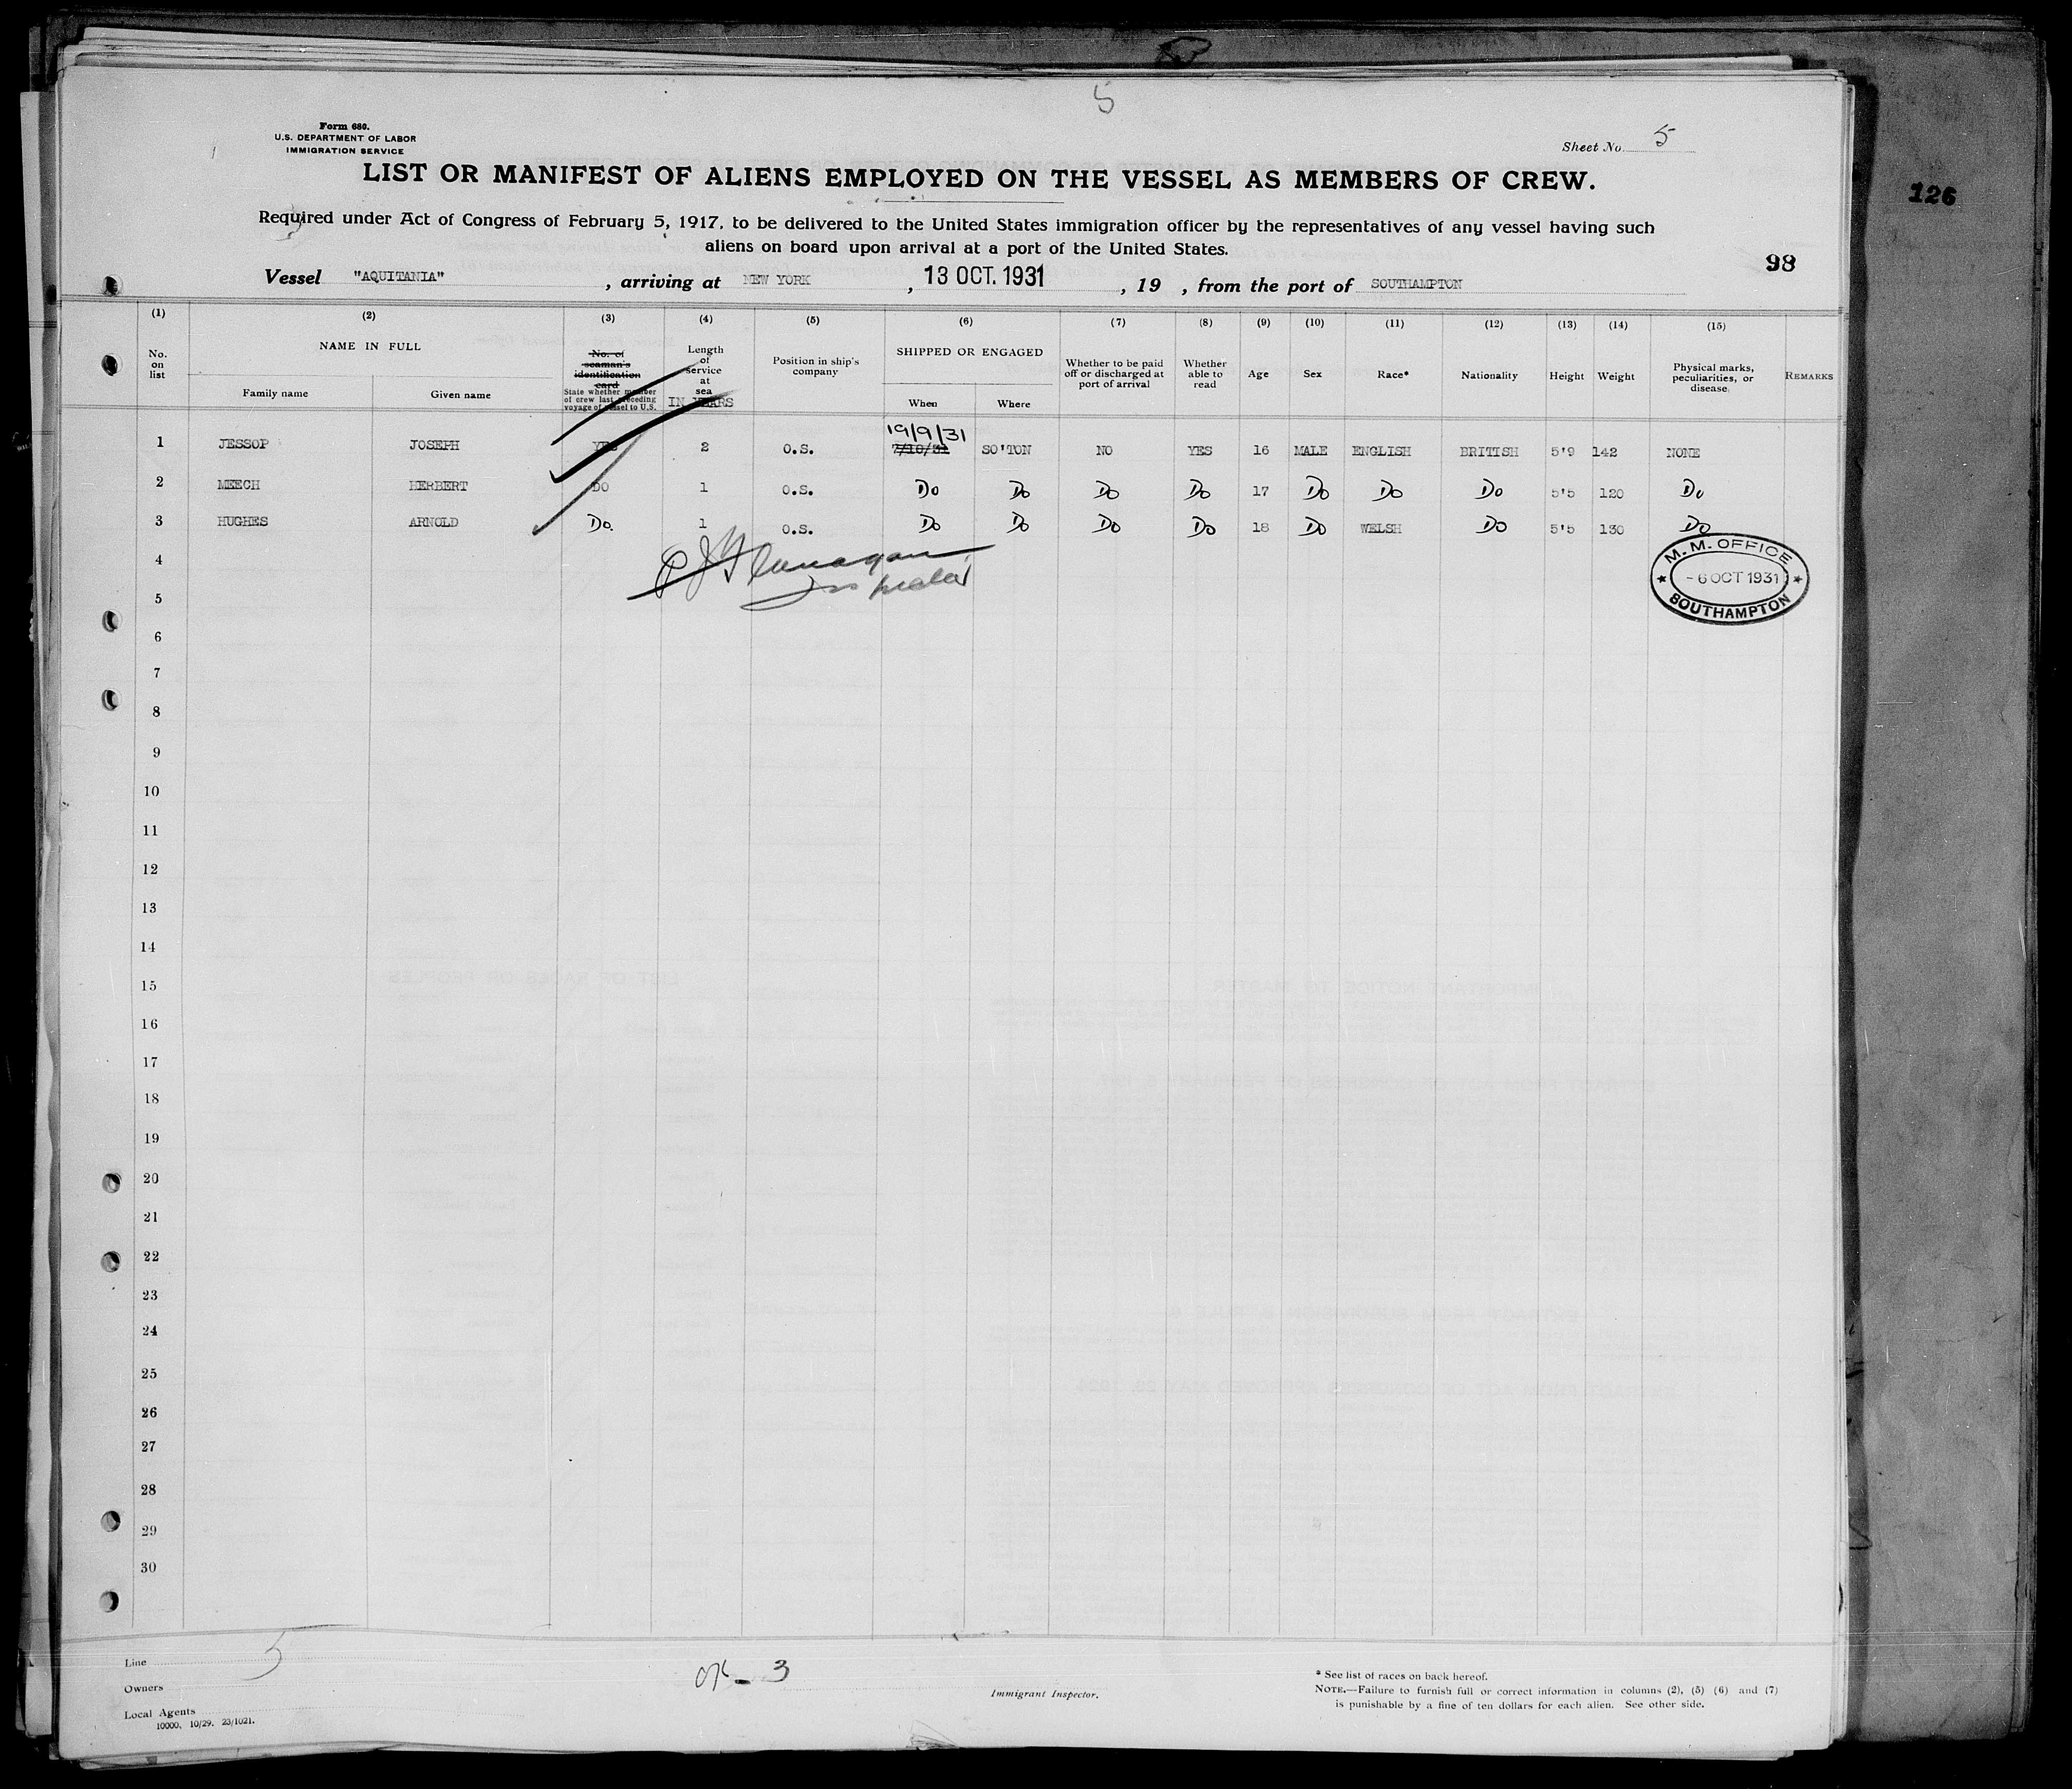 5
Form 680.
U.S. DEPARTMENT OF LABOR
IMMIGRATION SERVICE
Sheet No. 5
LIST OR MANIFEST OF ALIENS EMPLOYED ON THE VESSEL AS MEMBERS OF CREW.
126
Required under Act of Congress of February 5, 1917, to be delivered to the United States immigration officer by the representatives of any vessel having such
aliens on board upon arrival at a port of the United States.
98
Vessel "AQUITANIA", arriving at NEW YORK, 13 OCT. 1931, 19 , from the port of SOUTHAMPTON
(1) (2) (3) (4) (5) (6) (7) (8) (9) (10) (11) (12) (13) (14) (15)
No. on list
NAME IN FULL
Family name Given name
No. of seaman's identification card
State whether member of crew last preceding voyage of vessel to U.S.
Length of service at sea
IN YEARS
Position in ship's company
SHIPPED OR ENGAGED
When Where
Whether to be paid off or discharged at port of arrival
Whether able to read
Age
Sex
Race*
Nationality
Height
Weight
Physical marks, peculiarities, or disease
REMARKS
19/9/31
1 JESSOP JOSEPH YES 2 O.S. 7/10/31 SO'TON NO YES 16 MALE ENGLISH BRITISH 5'9 142 NONE
2 MEECH HERBERT DO 1 O.S. Do Do Do Do 17 Do Do Do 5'5 120 Do
3 HUGHES ARNOLD Do. 1 O.S. Do Do Do Do 18 Do WELSH Do 5'5 130 Do
4
Flanagan
Inspector
M. M. OFFICE
- 6 OCT 1931
SOUTHAMPTON
5
6
7
8
9
10
11
12
13
14
15
16
17
18
19
20
21
22
23
24
25
26
27
28
29
30
Line 5
Owners
Local Agents
10000. 10/29. 23/1021.
OK - 3
Immigrant Inspector.
* See list of races on back hereof.
NOTE.—Failure to furnish full or correct information in columns (2), (5) (6) and (7)
is punishable by a fine of ten dollars for each alien. See other side.